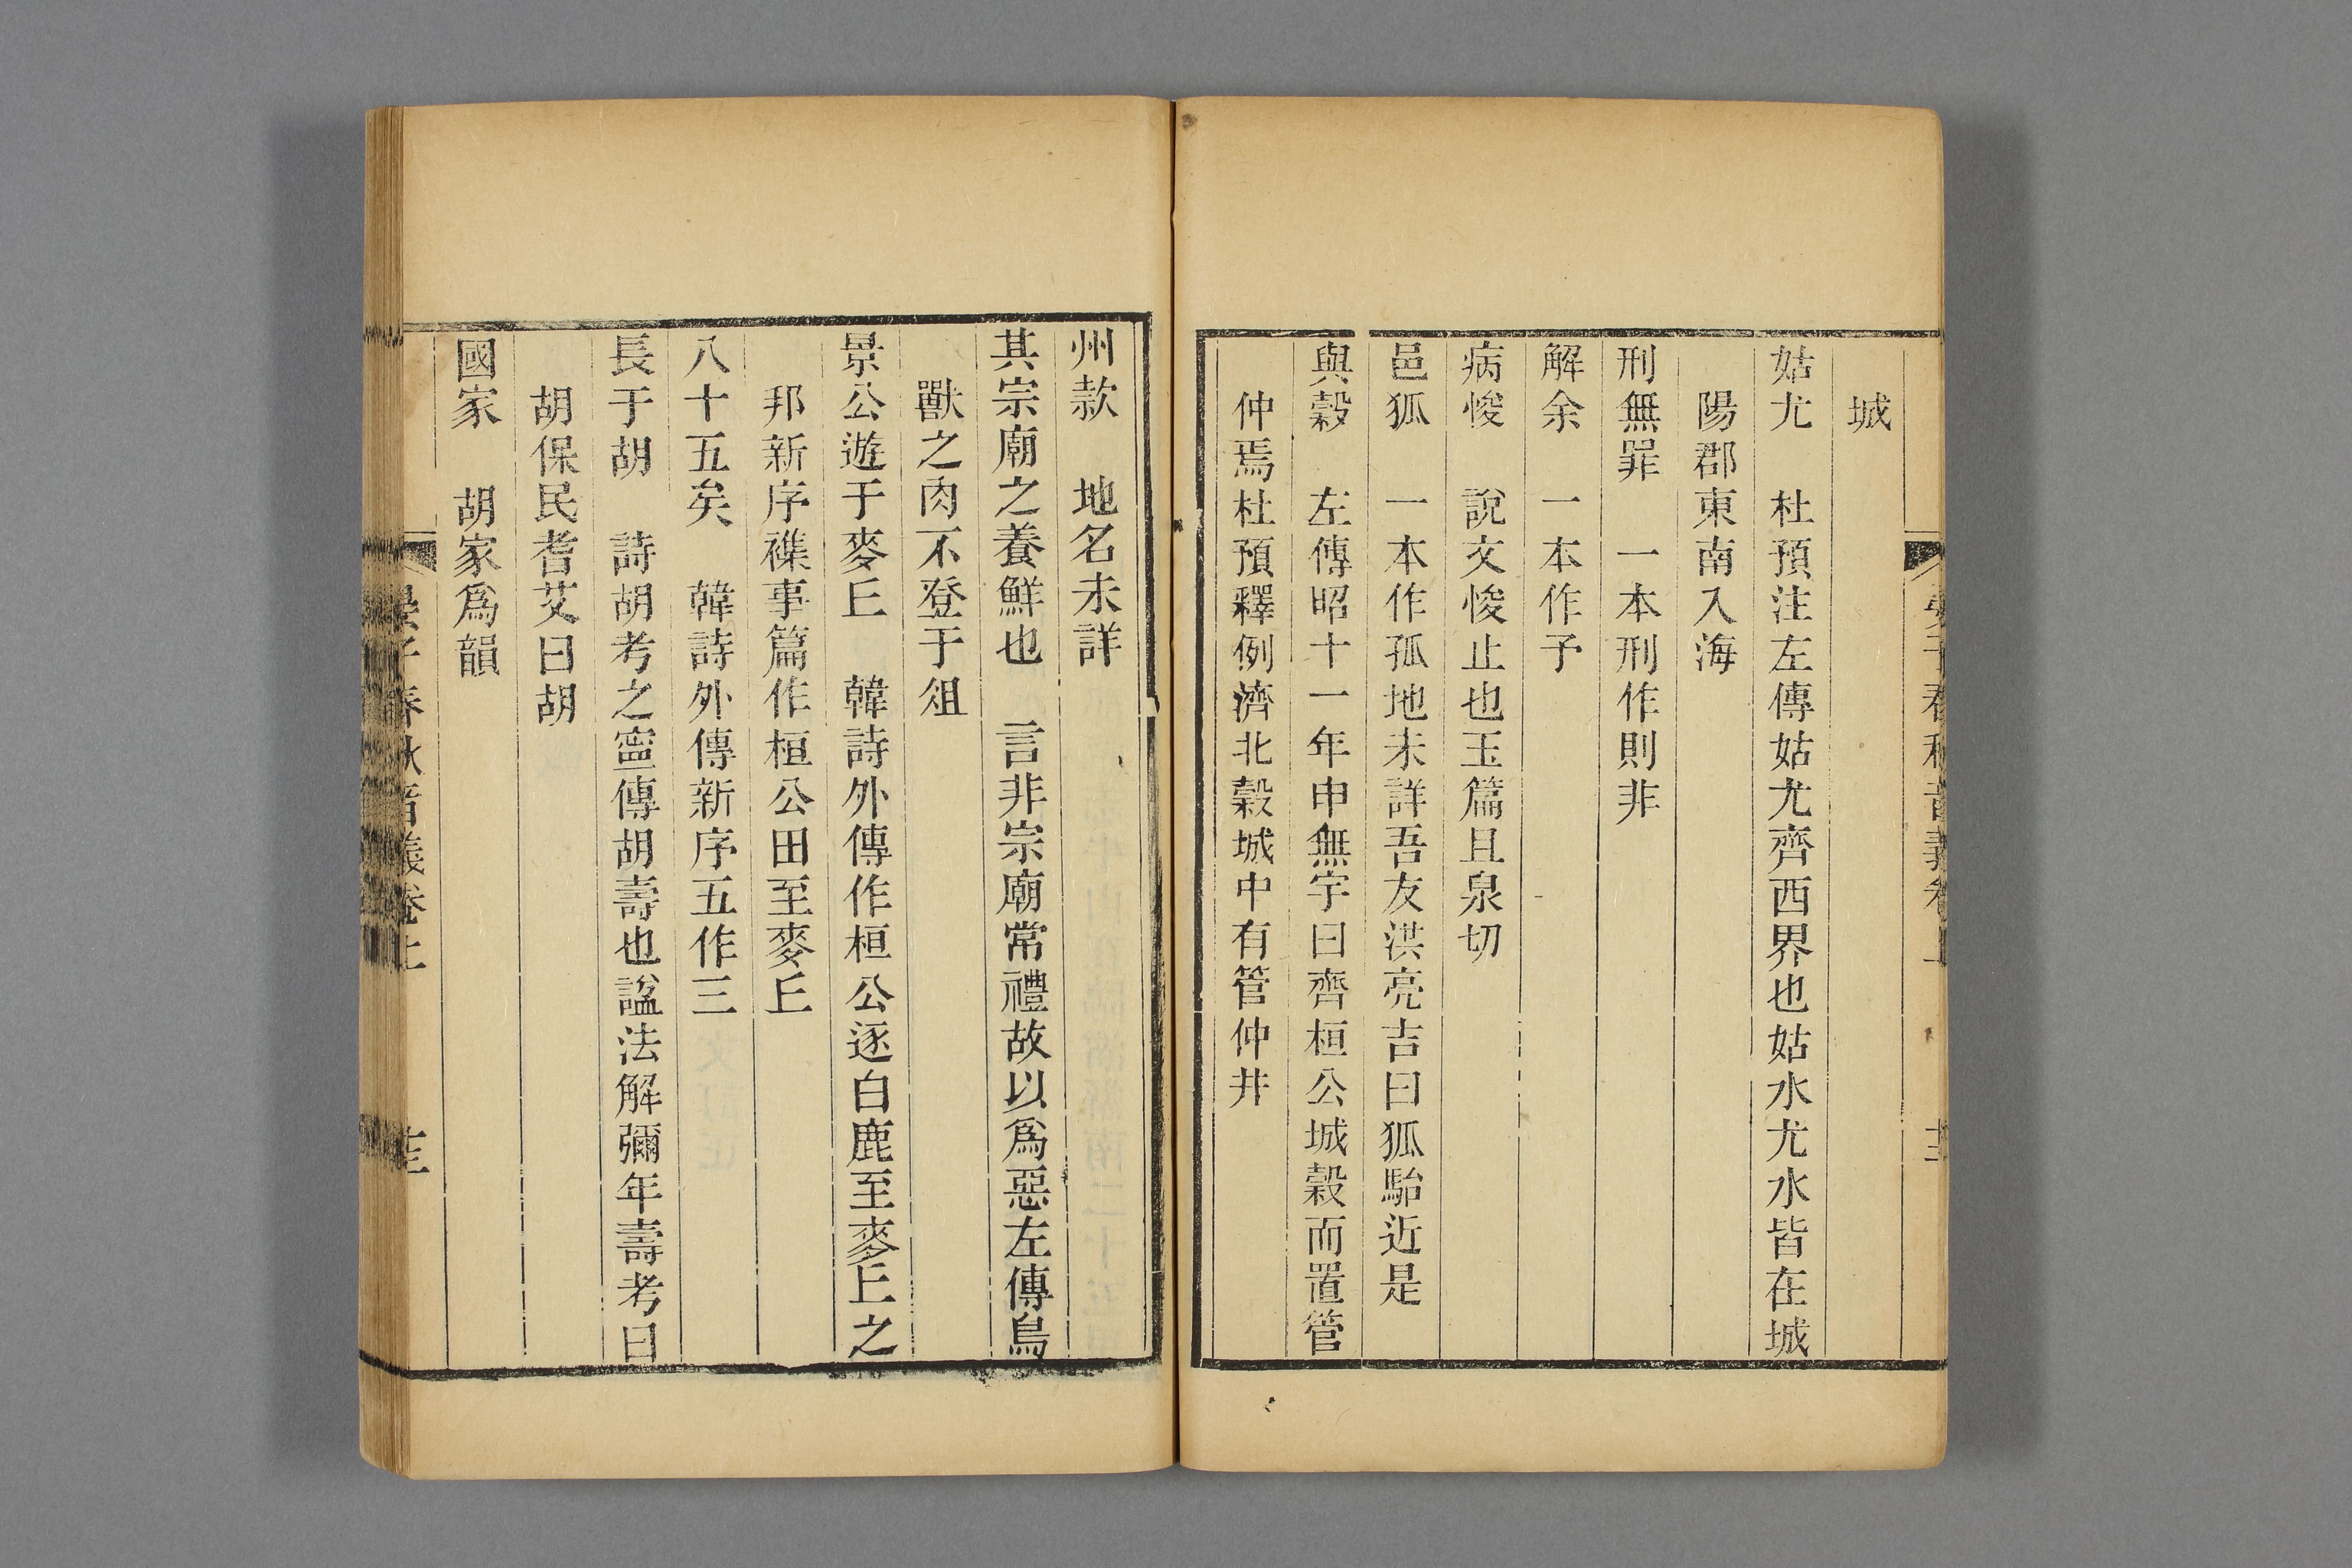 城
姑尤　杜預注左傳姑尤齊西界也姑水尤水皆在城
陽郡東南入海
刑無罪　一本刑作則非
解余　一本作予
病悛　說文悛止也玉篇且泉切
邑狐　一本作孤地未詳吾友洪亮吉曰狐駘近是
與穀　左傳昭十一年申無宇曰齊桓公城穀而置管
仲焉杜預釋例濟北穀城中有管仲井
州款　地名未詳
其宗廟之養鮮也　言非宗廟常禮故以爲惡左傳鳥
獸之肉不登于俎
景公遊于麥丘　韓詩外傳作桓公逐白鹿至麥丘之
邦新序襍事篇作桓公田至麥丘
八十五矣　韓詩外傳新序五作三
長于胡　詩胡考之寧傳胡壽也謚法解彌年壽考曰
胡保民耆艾曰胡
國家　胡家爲韻
晏子春秋音義卷上